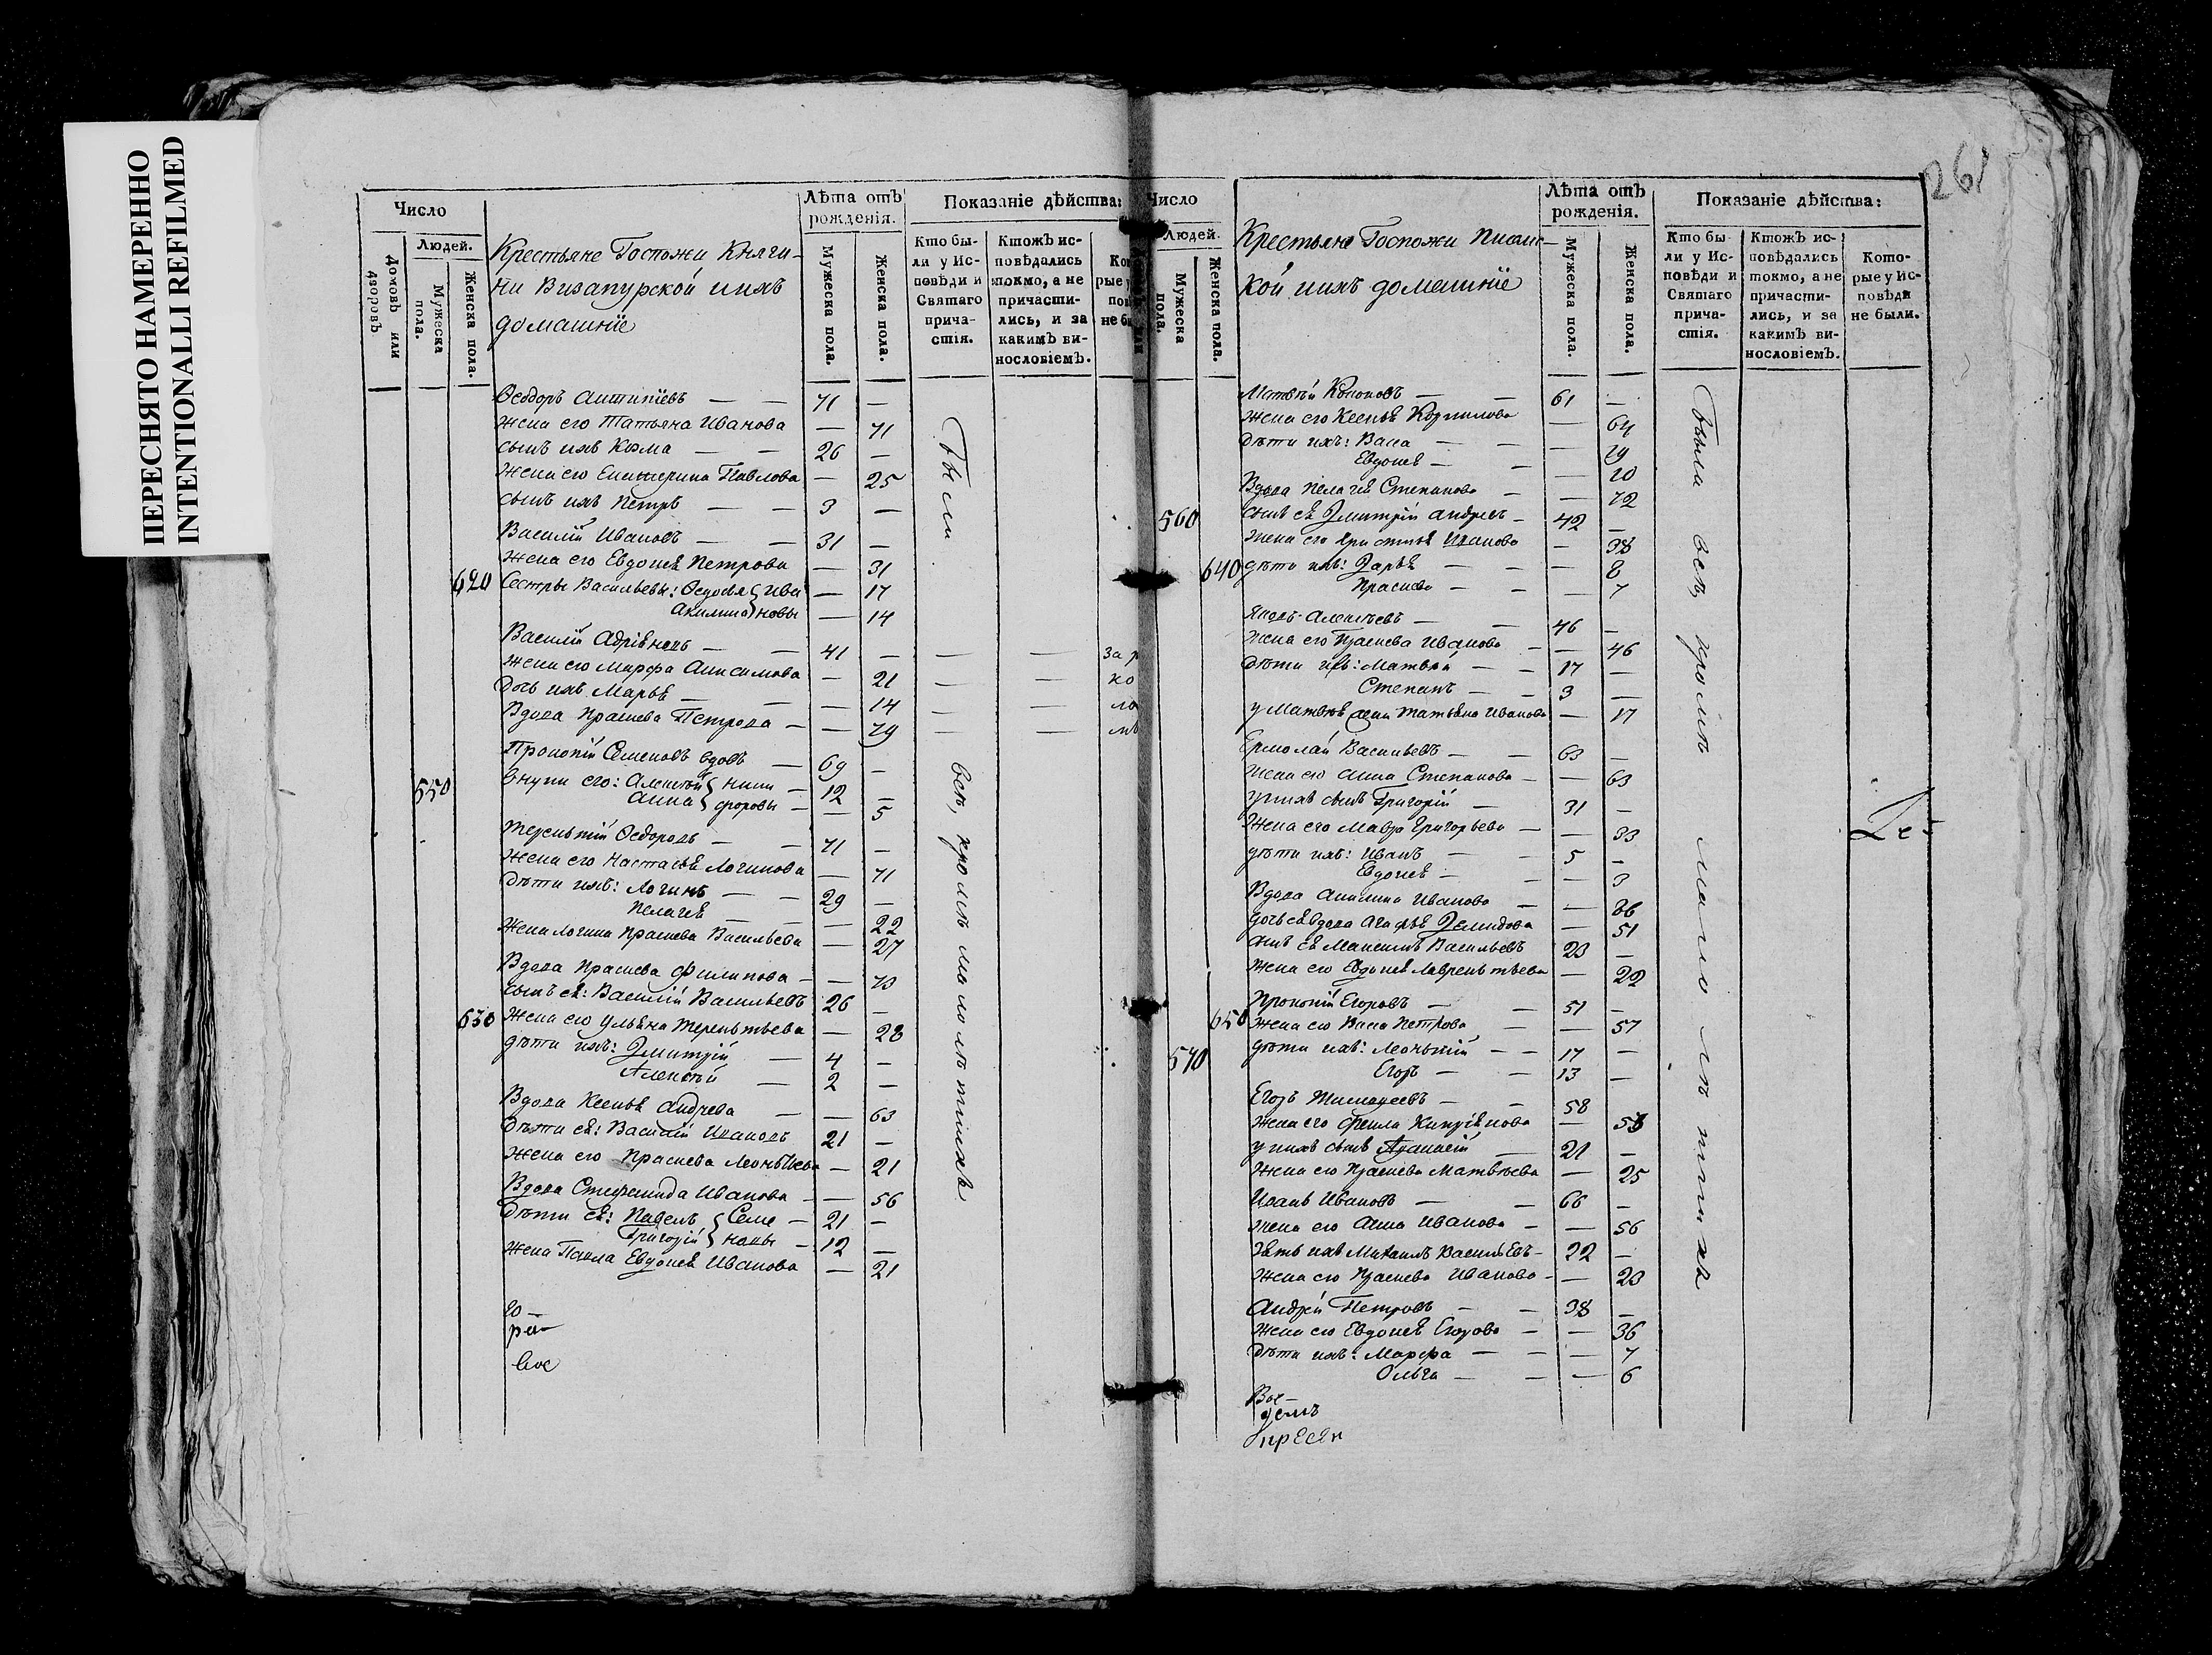 ПЕРЕСНЯТО НАМЕРЕННО
INTENTIONALLI REFILMED
Число
Людей.
Домовъ или дворовъ
Мужеска пола.
Женска пола.
Крестьяне Госпожи Княги-
ни Визапурской и ихъ
домашніе
Лѣта отъ рожденія.
Мужеска пола.
Женска пола.
Показаніе дѣйства:
Кто бы-
ли у Ис-
повѣди и
Святаго
прича-
стія.
Ктожъ ис-
повѣдались
токмо, а не
причасти-
лись, и за
какимъ ви-
нословіемъ.
Ѳеодоръ Антипіевъ — — 71 —
жена его Татьяна Иванова — 71
сынъ ихъ Козма — — 26 —
Жена его Екатерина Павлова — 25
сынъ ихъ Петръ — — 3 —
Василій Ивановъ — — 31 —
жена его Евдокия Петрова — 31
620 Сестры Васильевы: Ѳедосья Ива — 17
Акилина новы — 14
Василій — — 41 — — — за р
жена его Марфа Анисимова — 21 — — ко
дочь ихъ Марья — — — 14 — — ло
Вдова Праскева Петрова — — 79 — — мъ
Прокопій Семеновъ вдовъ — 69 —
550 внуки его: Алексѣй Ники — 12 —
Анна форовы — — 5
Терентій Ѳедоровъ — — 71 —
жена его Настасья Логинова — 71
дѣти ихъ: Логинъ — — 29 —
Пелагея — — — 22
жена Логина Праскева Васильева — 27
Вдова Праскева Филипова — — 73
сынъ ея: Василій Васильевъ 26 —
630 жена его Ульяна Терентьева — 28
дѣти ихъ: Дмитрій — 4 —
Алексѣй — 2 —
Вдова Ксенья Андреева — — 63
дѣти ея: Василій Ивановъ 21 —
жена его Праскева Леонтьева — 21
Вдова Стефанида Иванова — — 56
дѣти ея: Павелъ Семе — 21 —
Григорій новы — 12 —
жена Павла Евдокия Иванова — 21
Были всѣ, кромѣ малолѣтнихъ
вос
261
Число
Людей.
Мужеска пола.
Женска пола.
Крестьяне Госпожи Писми-
кой и ихъ домашніе
Лѣта отъ рожденія.
Мужеска пола.
Женска пола.
Показаніе дѣйства:
Кто бы-
ли у Ис-
повѣди и
Святаго
прича-
стія.
Ктожъ ис-
повѣдались
токмо, а не
причасти-
лись, и за
какимъ ви-
нословіемъ.
Кото-
рые у Ис-
повѣди
не были.
Матвѣй Кононовъ — — 61 —
жена его Ксенья Корнилова — 64
дѣти ихъ: Васа — — — 19
Евдокия — — — 10
Вдова Пелагея Степанова — — 72
560 сынъ ея Дмитрій Андреевъ — 42 —
жена его Иванова — 38
640 дѣти ихъ: Дарья — — — 8
Праскева — — — 7
Яковъ Алексѣевъ — — 46 —
жена его Праскева Иванова — — 46
дѣти ихъ: Матвей — — 17 —
Степанъ — — 3 —
у Матвея жена Татьяна Иванова — 17
Ермолай Васильевъ — — 63 —
жена его Анна Степанова — — 63
у нихъ сынъ Григорій — 31 —
жена его Мавра Григорьева — — 33
дѣти ихъ: Иванъ — — 5 —
Евдокия — — — 3
Вдова Иванова — — 86
дочь ея вдова Агафья Демидова — 51
сынъ ея Максимъ Васильевъ 23 —
жена его Евдокия Лаврентьева — 22
Прокопій Егоровъ — 51 —
650 жена его Васа Петрова — — 57
570 дѣти ихъ: Леонтій — — 17 —
Егоръ — — 13 —
Егоръ Тимофеевъ — — 58
жена его Фекла — 58
у нихъ сынъ Афанасій — 21 —
жена его Праскева Матвѣева — 25
Иванъ Ивановъ — — 66 —
жена его Анна Иванова — — 56
зять ихъ Михаилъ Васильевъ — 22 —
жена его Праскева Иванова — — 23
Андрей Петровъ — — 38 —
жена его Евдокия Егорова — — 36
дѣти ихъ: Марфа — — — 7
Ольга — — — 6
Были всѣ, кромѣ малолѣтнихъ